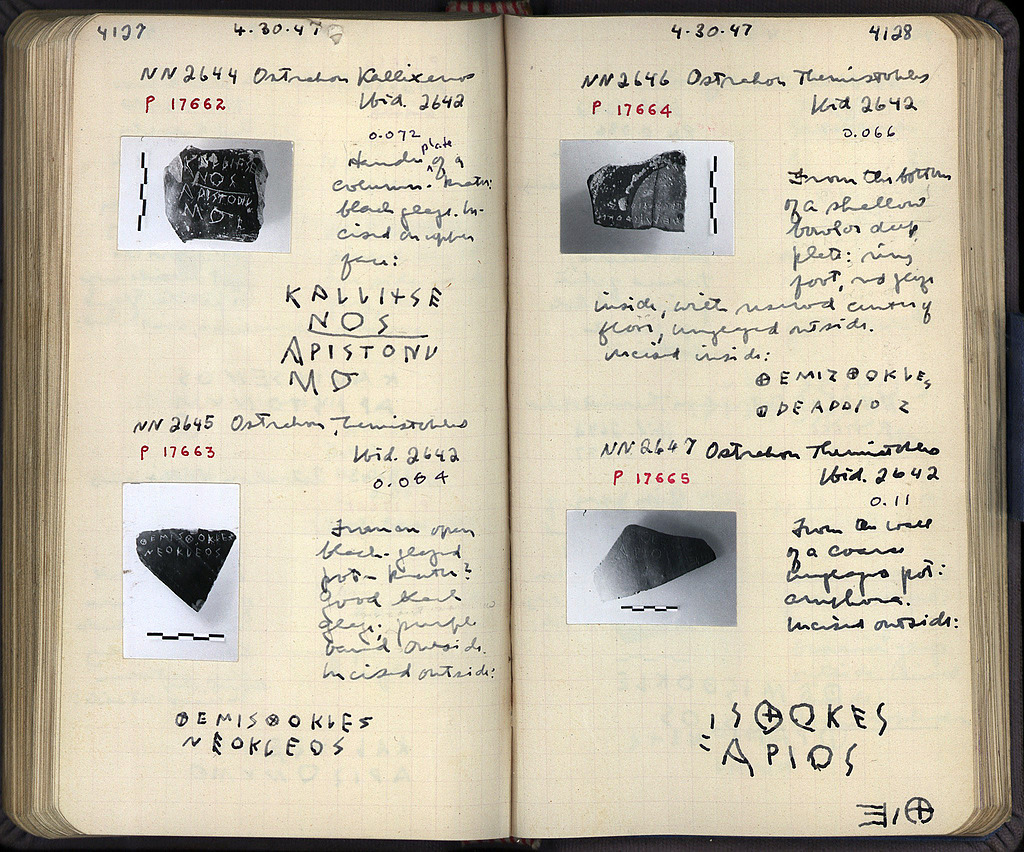 4127
4-30-47
NN 2644 Ostrakon Kallixenos
P 17662
Ibid. 2642
0.072
Handle plate of a
column-krater:
black glaze. In-
cised on upper
face:
KALLIXSE
NOS
ARISTONU
MO
NN 2645 Ostrakon, Themistokles
P 17663
Ibid. 2642
0.064
From an open
black-glazed
pot - krater?
Good black
glaze: purple
band outside.
Incised outside:
⊕EMIS⊕OKLES
NEOKLEOS
4-30-47
4128
NN 2646 Ostrakon Themistokles
P 17664
Ibid 2642
0.066
From the bottom
of a shallow
bowl or deep
plate: ring
foot, no glaze
inside, with reserved center of
floor, unglazed outside.
Incised inside:
⊕EMIZ⊕OKLES
NN 2647 Ostrakon Themistokles
P 17665
Ibid. 2642
0.11
From the wall
of a coarse
unglazed pot:
amphora.
Incised outside:
IS⊕OKES
APIOS